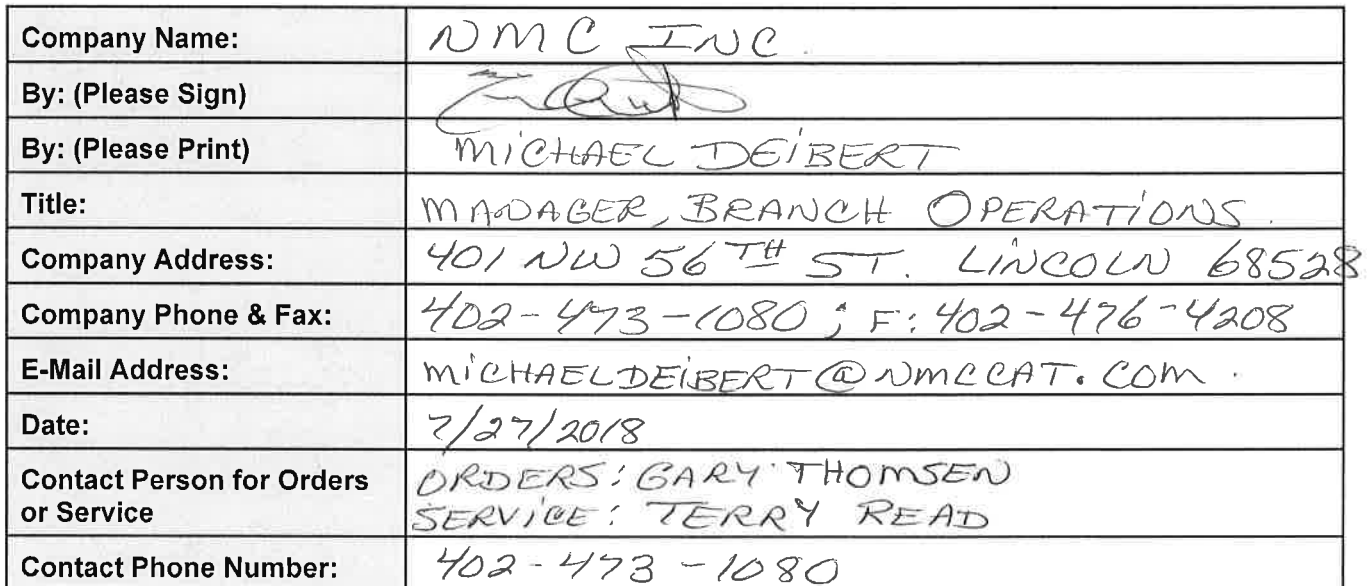 Company Name: NMC INC.
By: (Please Sign)
By: (Please Print) MICHAEL DEIBERT
Title: MANAGER, BRANCH OPERATIONS.
Company Address: 401 NW 56TH ST. LINCOLN 68528
Company Phone & Fax: 402-473-1080; F: 402-476-4208
E-Mail Address: MICHAELDEIBERT@NMCCAT.COM.
Date: 7/27/2018
Contact Person for Orders ORDERS: GARY THOMSEN
or Service SERVICE: TERRY READ
Contact Phone Number: 402-473-1080